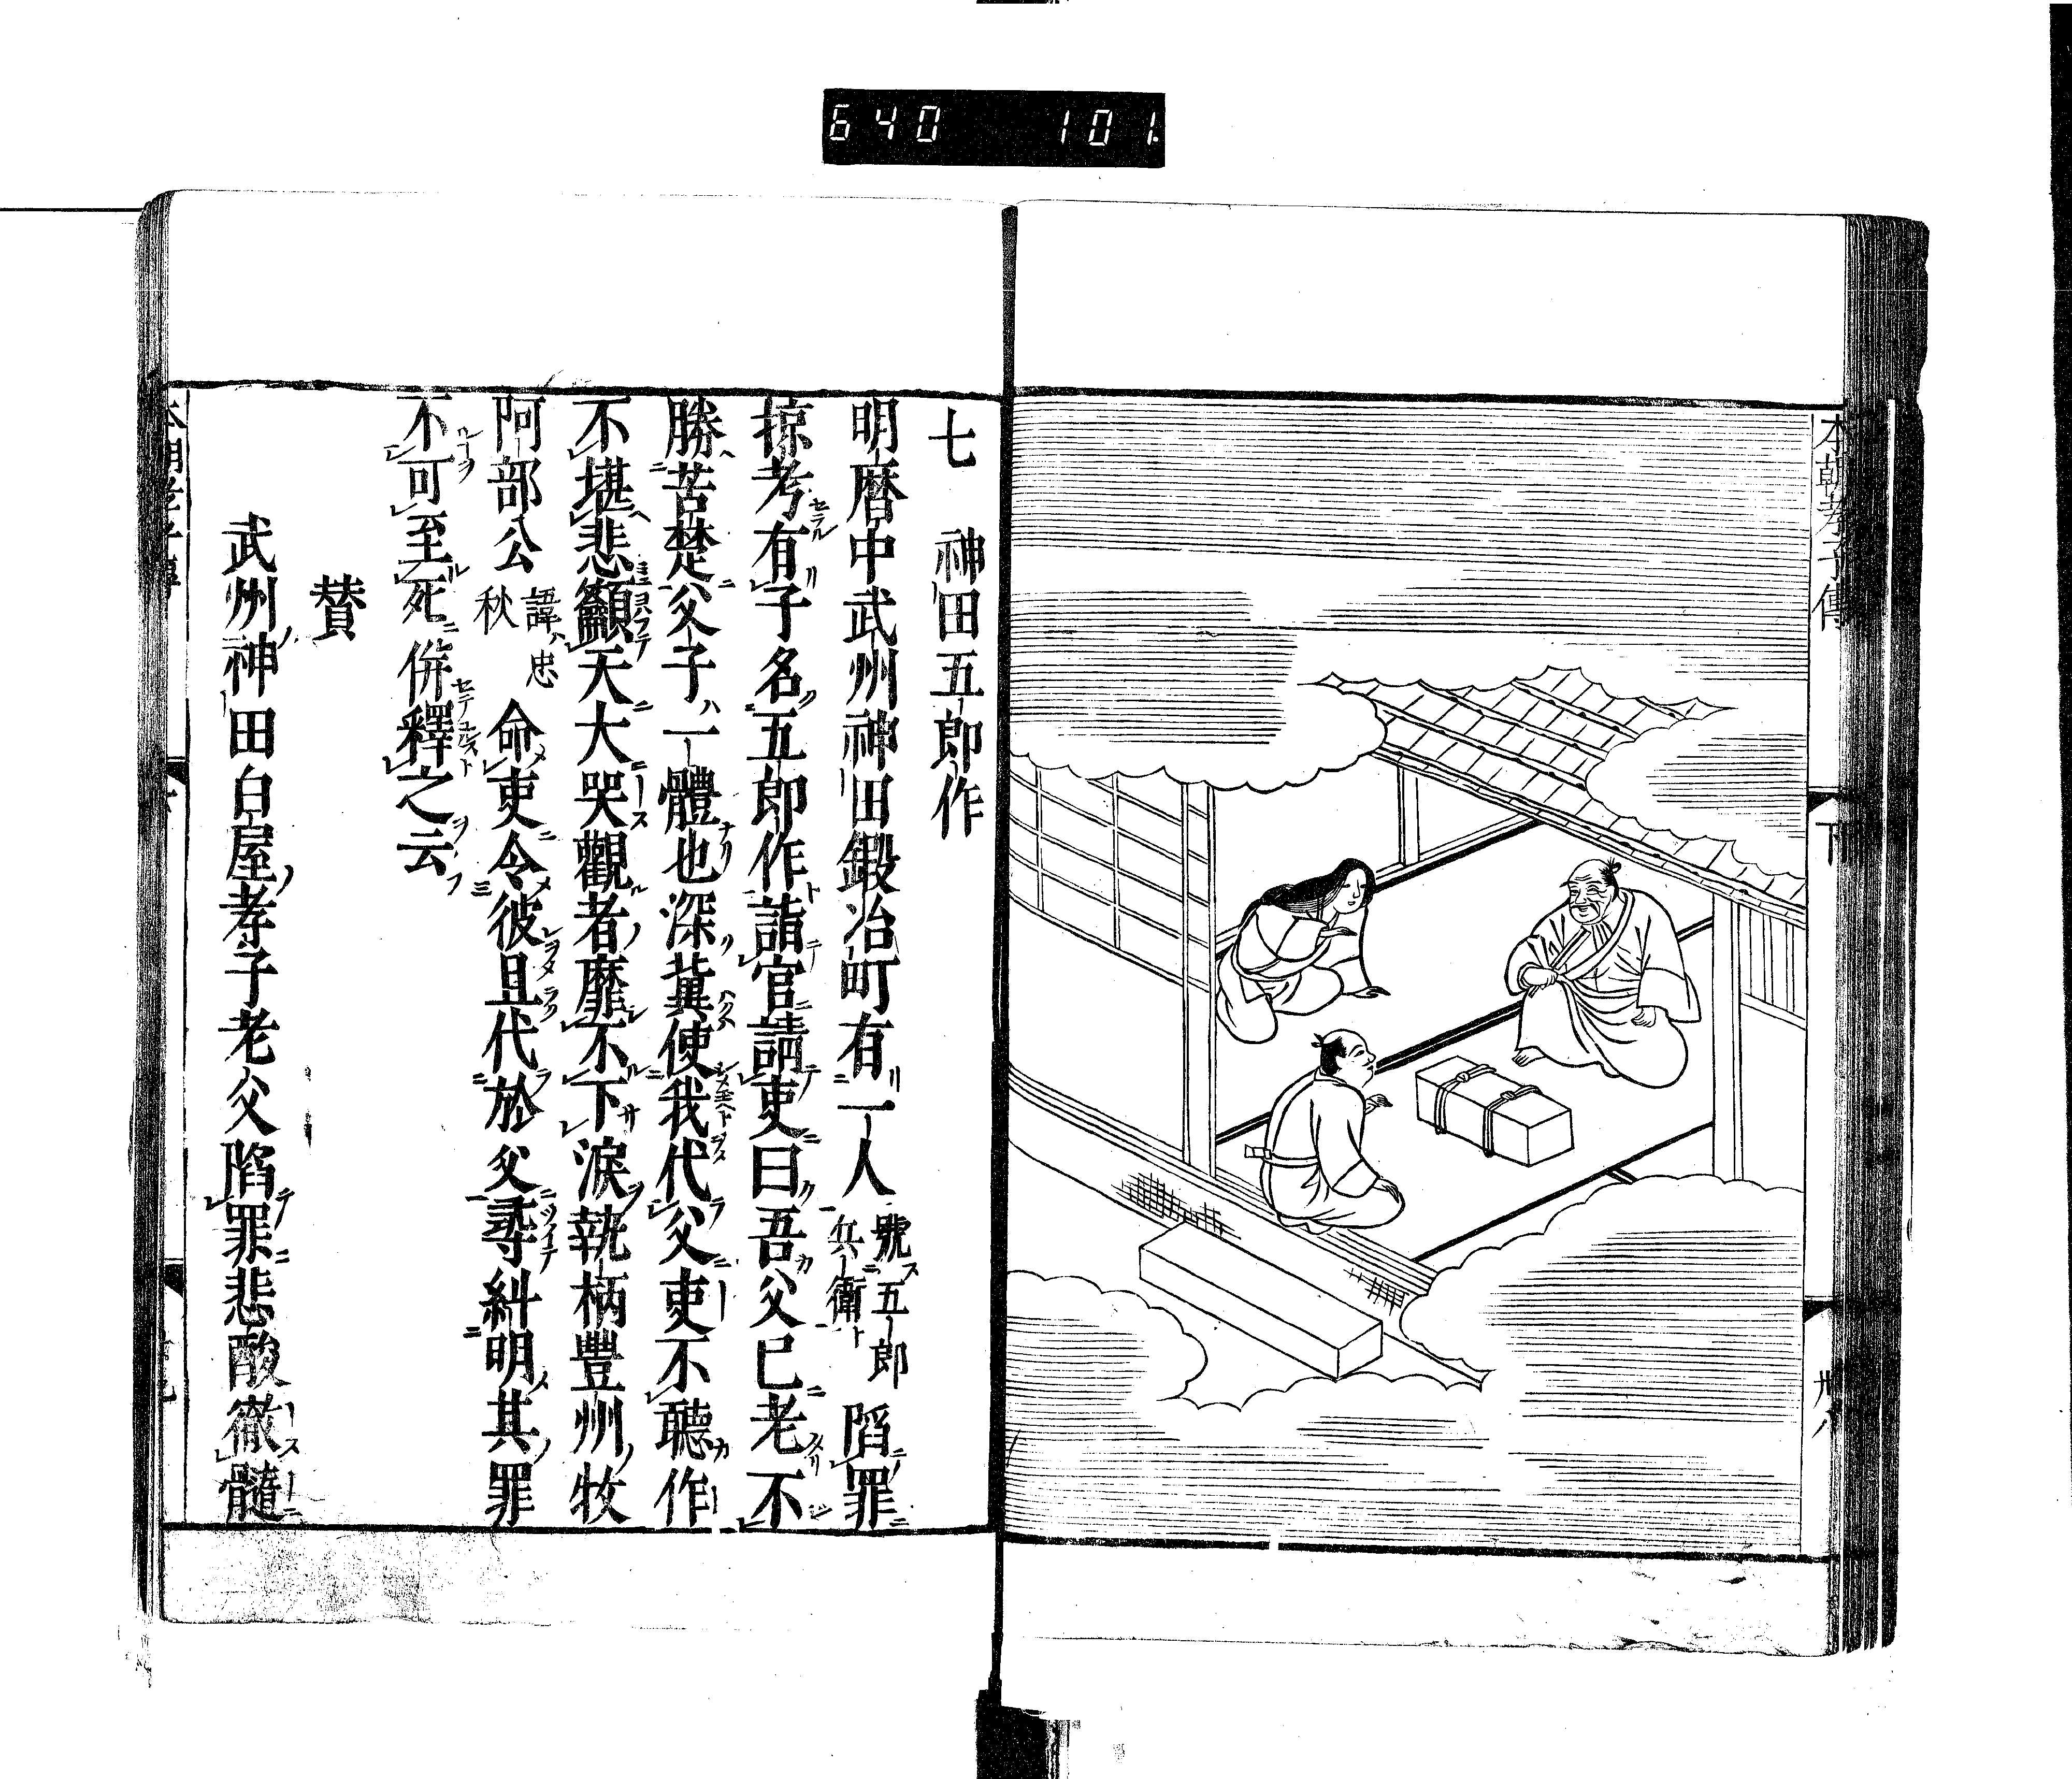 640 101
本朝孝子傳
下
卅八
七 神田五郎作
明暦中武州神田鍛冶町有一人號五郎兵衛陷罪
掠考有子名五郎作詣官請吏曰吾父已老不
勝苦楚父子一體也深冀使我代父吏不聽作
不堪悲籲天大哭觀者靡不下淚執柄豐州牧
阿部公諱忠秋命吏令彼且代於父尋糾明其罪
不可至死併釋之云
賛
武州神田白屋孝子老父陷罪悲酸徹髓